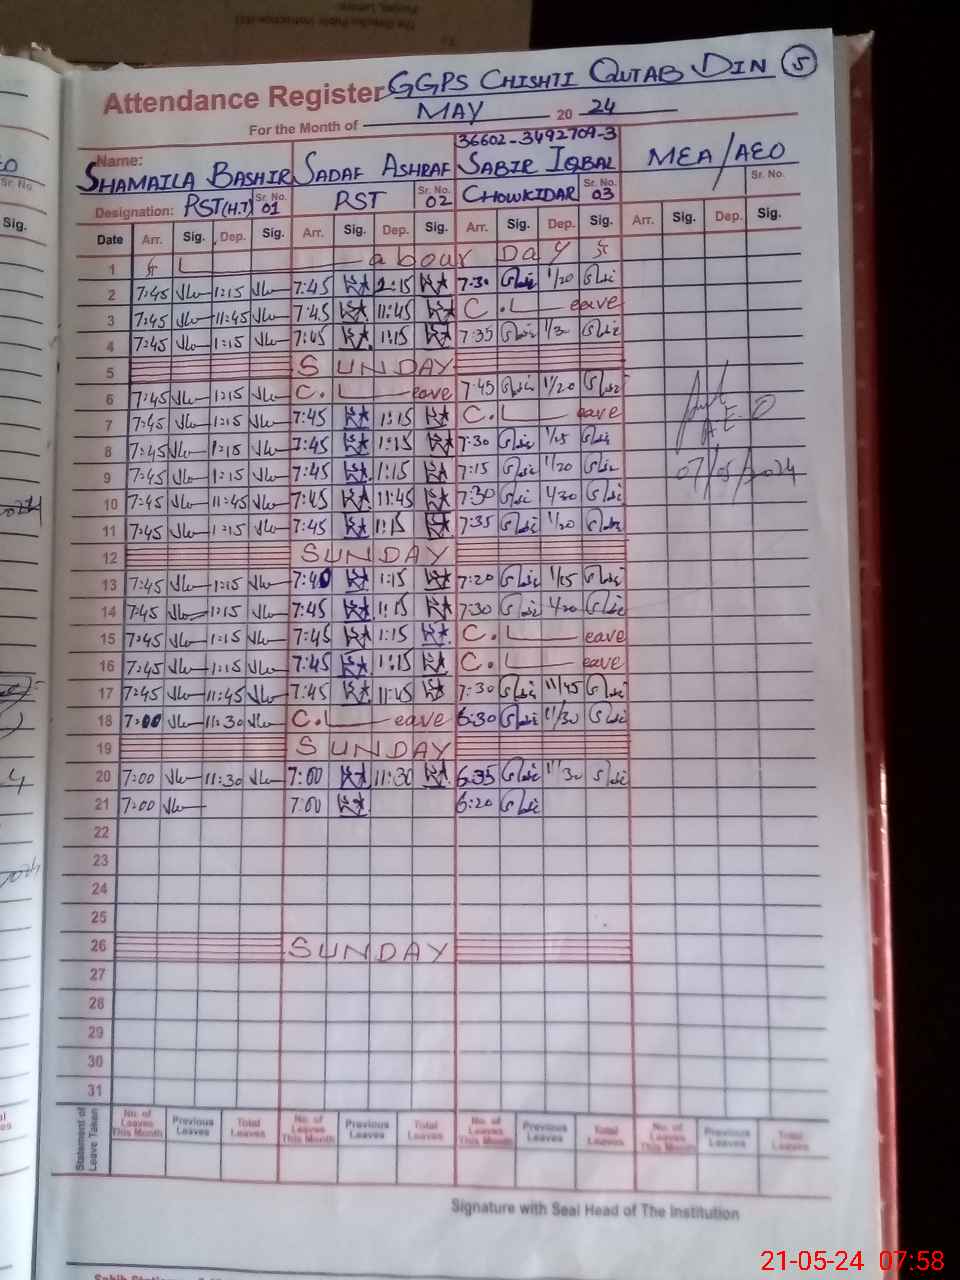 Attendance Register GGPS CHISHTI QUTAB DIN 5
For the Month of MAY 20 24
Name: SHAMAILA BASHIR SADAF ASHRAF 36602-3492709-3 SABIR IQBAL MEA/AEO
Designation: PST(H.T) Sr. No. 01 PST Sr. No. 02 CHOWKIDAR Sr. No. 03 Sr. No.
Date Arr. Sig. Dep. Sig. Arr. Sig. Dep. Sig. Arr. Sig. Dep. Sig. Arr. Sig. Dep. Sig.
1 Labour Day
2 7:45 1:15 7:45 1:15 7:30 1/20
3 7:45 11:45 7:45 11:45 C.Leave
4 7:45 1:15 7:45 1:15 7:35 1/30
5 SUNDAY
6 7:45 1:15 C.Leave 7:45 1/20
7 7:45 1:15 7:45 1:15 C.Leave
8 7:45 1:15 7:45 1:15 7:30 1/25
9 7:45 1:15 7:45 1:15 7:15 1/20
10 7:45 11:45 7:45 11:45 7:30
11 7:45 1:15 7:45 1:15 7:35 1/20
12 SUNDAY
13 7:45 1:15 7:40 1:15 7:20
14 7:45 1:15 7:45 1:15 7:30
15 7:45 1:15 7:45 1:15 C.Leave
16 7:45 1:15 7:45 1:15 C.Leave
17 7:45 11:45 7:45 11:45 7:30 11/45
18 7:00 11:30 C.Leave 6:30 11/30
19 SUNDAY
20 7:00 11:30 7:00 11:30 6:35 11/30
21 7:00 7:00 6:20
22
23
24
25
26 SUNDAY
27
28
29
30
31
A.E.O
07/05/2024
Statement of Leave Taken No. of Leaves This Month Previous Leaves Total Leaves No. of Leaves This Month Previous Leaves Total Leaves No. of Leaves This Month Previous Leaves Total Leaves No. of Leaves This Month Previous Leaves Total Leaves
Signature with Seal Head of The Institution
21-05-24 07:58